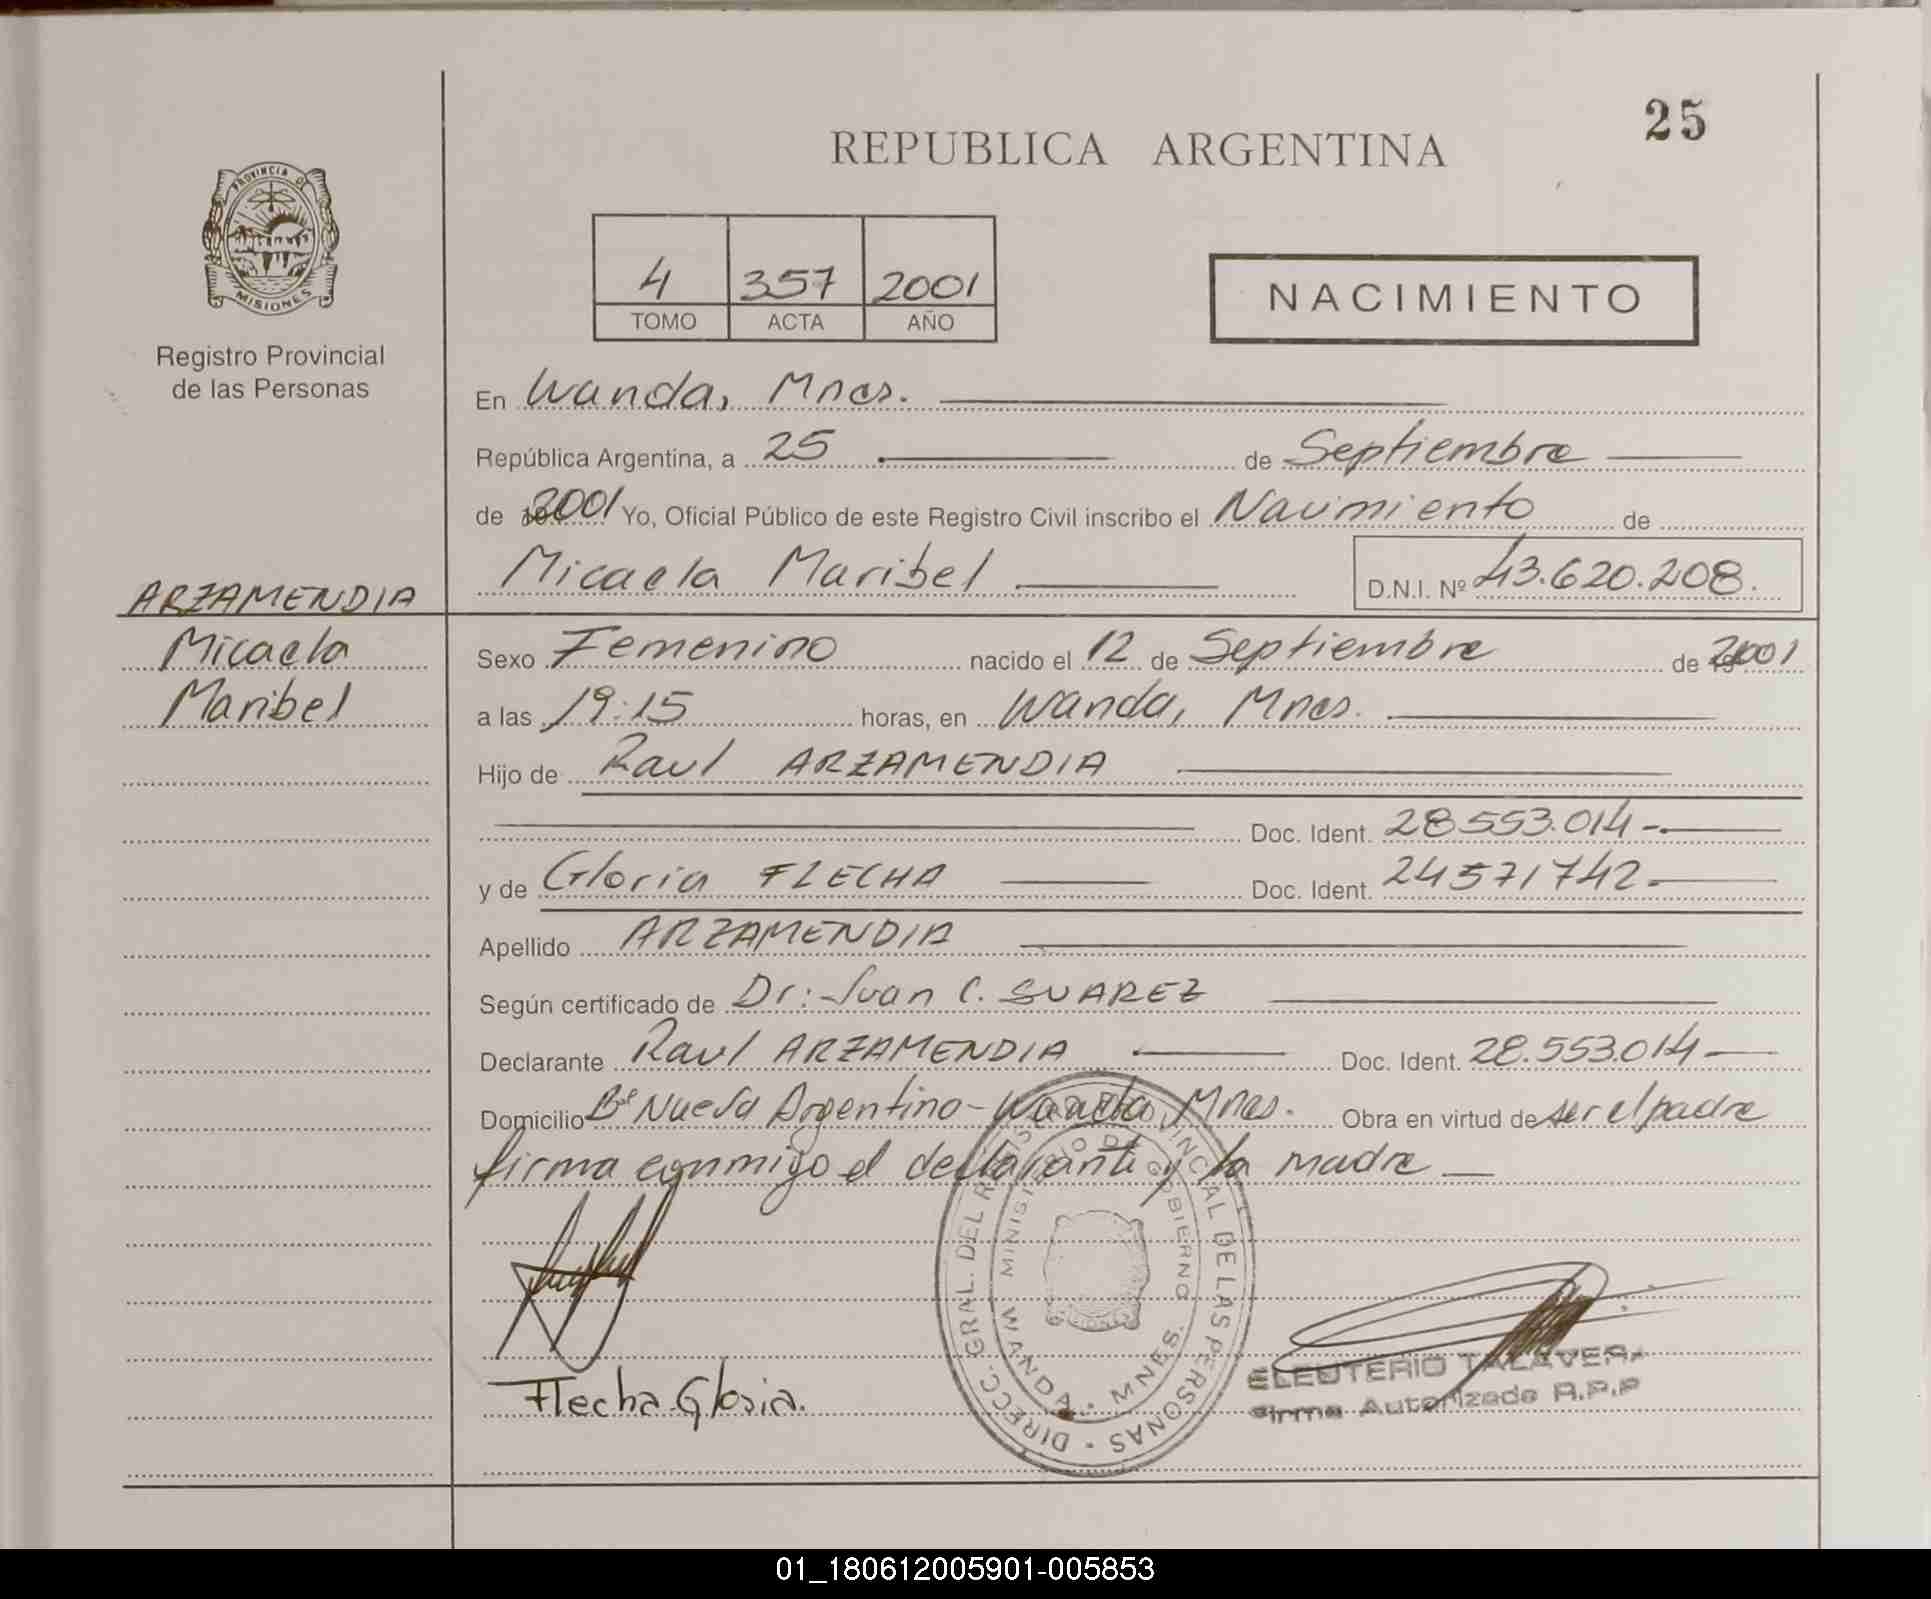 25
REPUBLICA ARGENTINA
PROVINCIA DE
MISIONES
Registro Provincial
de las Personas
4 357 2001
TOMO ACTA AÑO
NACIMIENTO
En Wanda, Mnes.
República Argentina, a 25 de Septiembre
de 2001 Yo, Oficial Público de este Registro Civil inscribo el Nacimiento de
Micaela Maribel D.N.I. Nº 43.620.208.
ARZAMENDIA
Micaela
Maribel
Sexo Femenino nacido el 12 de Septiembre de 2001
a las 19:15 horas, en Wanda, Mnes.
Hijo de Raul ARZAMENDIA
Doc. Ident. 28.553.014
y de Gloria FLECHA Doc. Ident. 24571742
Apellido ARZAMENDIA
Según certificado de Dr: Juan C. SUAREZ
Declarante Raul ARZAMENDIA Doc. Ident. 28.553.014
Domicilio Bº Nueva Argentino - Wanda, Mnes. Obra en virtud de ser el padre
firma conmigo el declarante y la madre
DIRECC. GRAL. DEL REGISTRO PROVINCIAL DE LAS PERSONAS
MINISTERIO DE GOBIERNO
WANDA - MNES.
Flecha Gloria.
ELEUTERIO TALAVERA
Firma Autorizada R.P.P
01_180612005901-005853